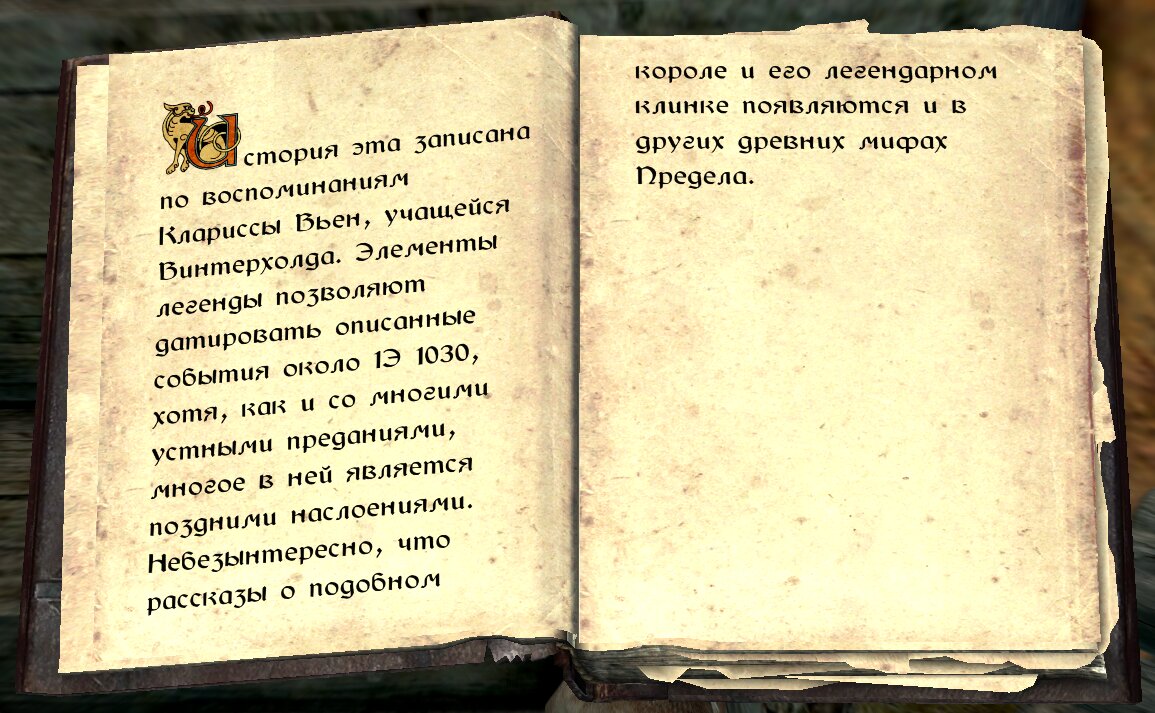 История эта записана
по воспоминаниям
Клариссы Вьен, учащейся
Винтерхолда. Элементы
легенды позволяют
датировать описанные
события около 1Э 1030,
хотя, как и со многими
устными преданиями,
многое в ней является
поздними наслоениями.
Небезынтересно, что
рассказы о подобном
короле и его легендарном
клинке появляются и в
других древних мифах
Предела.